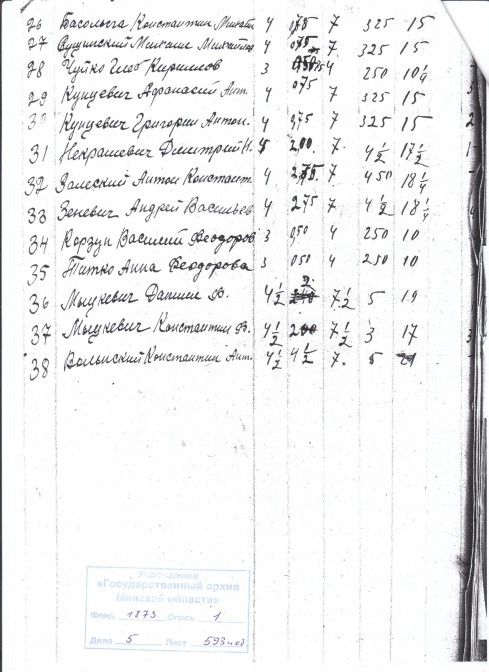 26 Басолыга Константин Михаил 4 075 7 325 15
27 Сущинский Михаил Михайлов 4 075 7 325 15
28 Чуйко Глеб Кирилов 3 4 250 10 1/4
29 Кунцевич Афанасий Ант. 4 075 7 325 15
30 Кунцевич Григорий Антон. 4 075 7 325 15
31 Некрашевич Дмитрий Н. 200 7 4 1/2 17 1/2
32 Залеский Антон Констант. 4 275 7 450 18 1/4
33 Зеневич Андрей Васильев 4 275 7 4 1/2 18 1/4
34 Корзун Василий Феодоров 3 050 4 250 10
35 Титко Анна Феодорова 3 050 4 250 10
36 Мышкевич Даниил Ф. 4 1/2 2 7 1/2 5 19
37 Мышкевич Константин Ф. 4 1/2 200 7 1/2 3 17
38 Волынский Константин Ант. 4 1/2 4 1/2 7 5 21
Учреждение
«Государственный архив
Минской области»
Фонд 1873 Опись 1
Дело 5 Лист 593 об